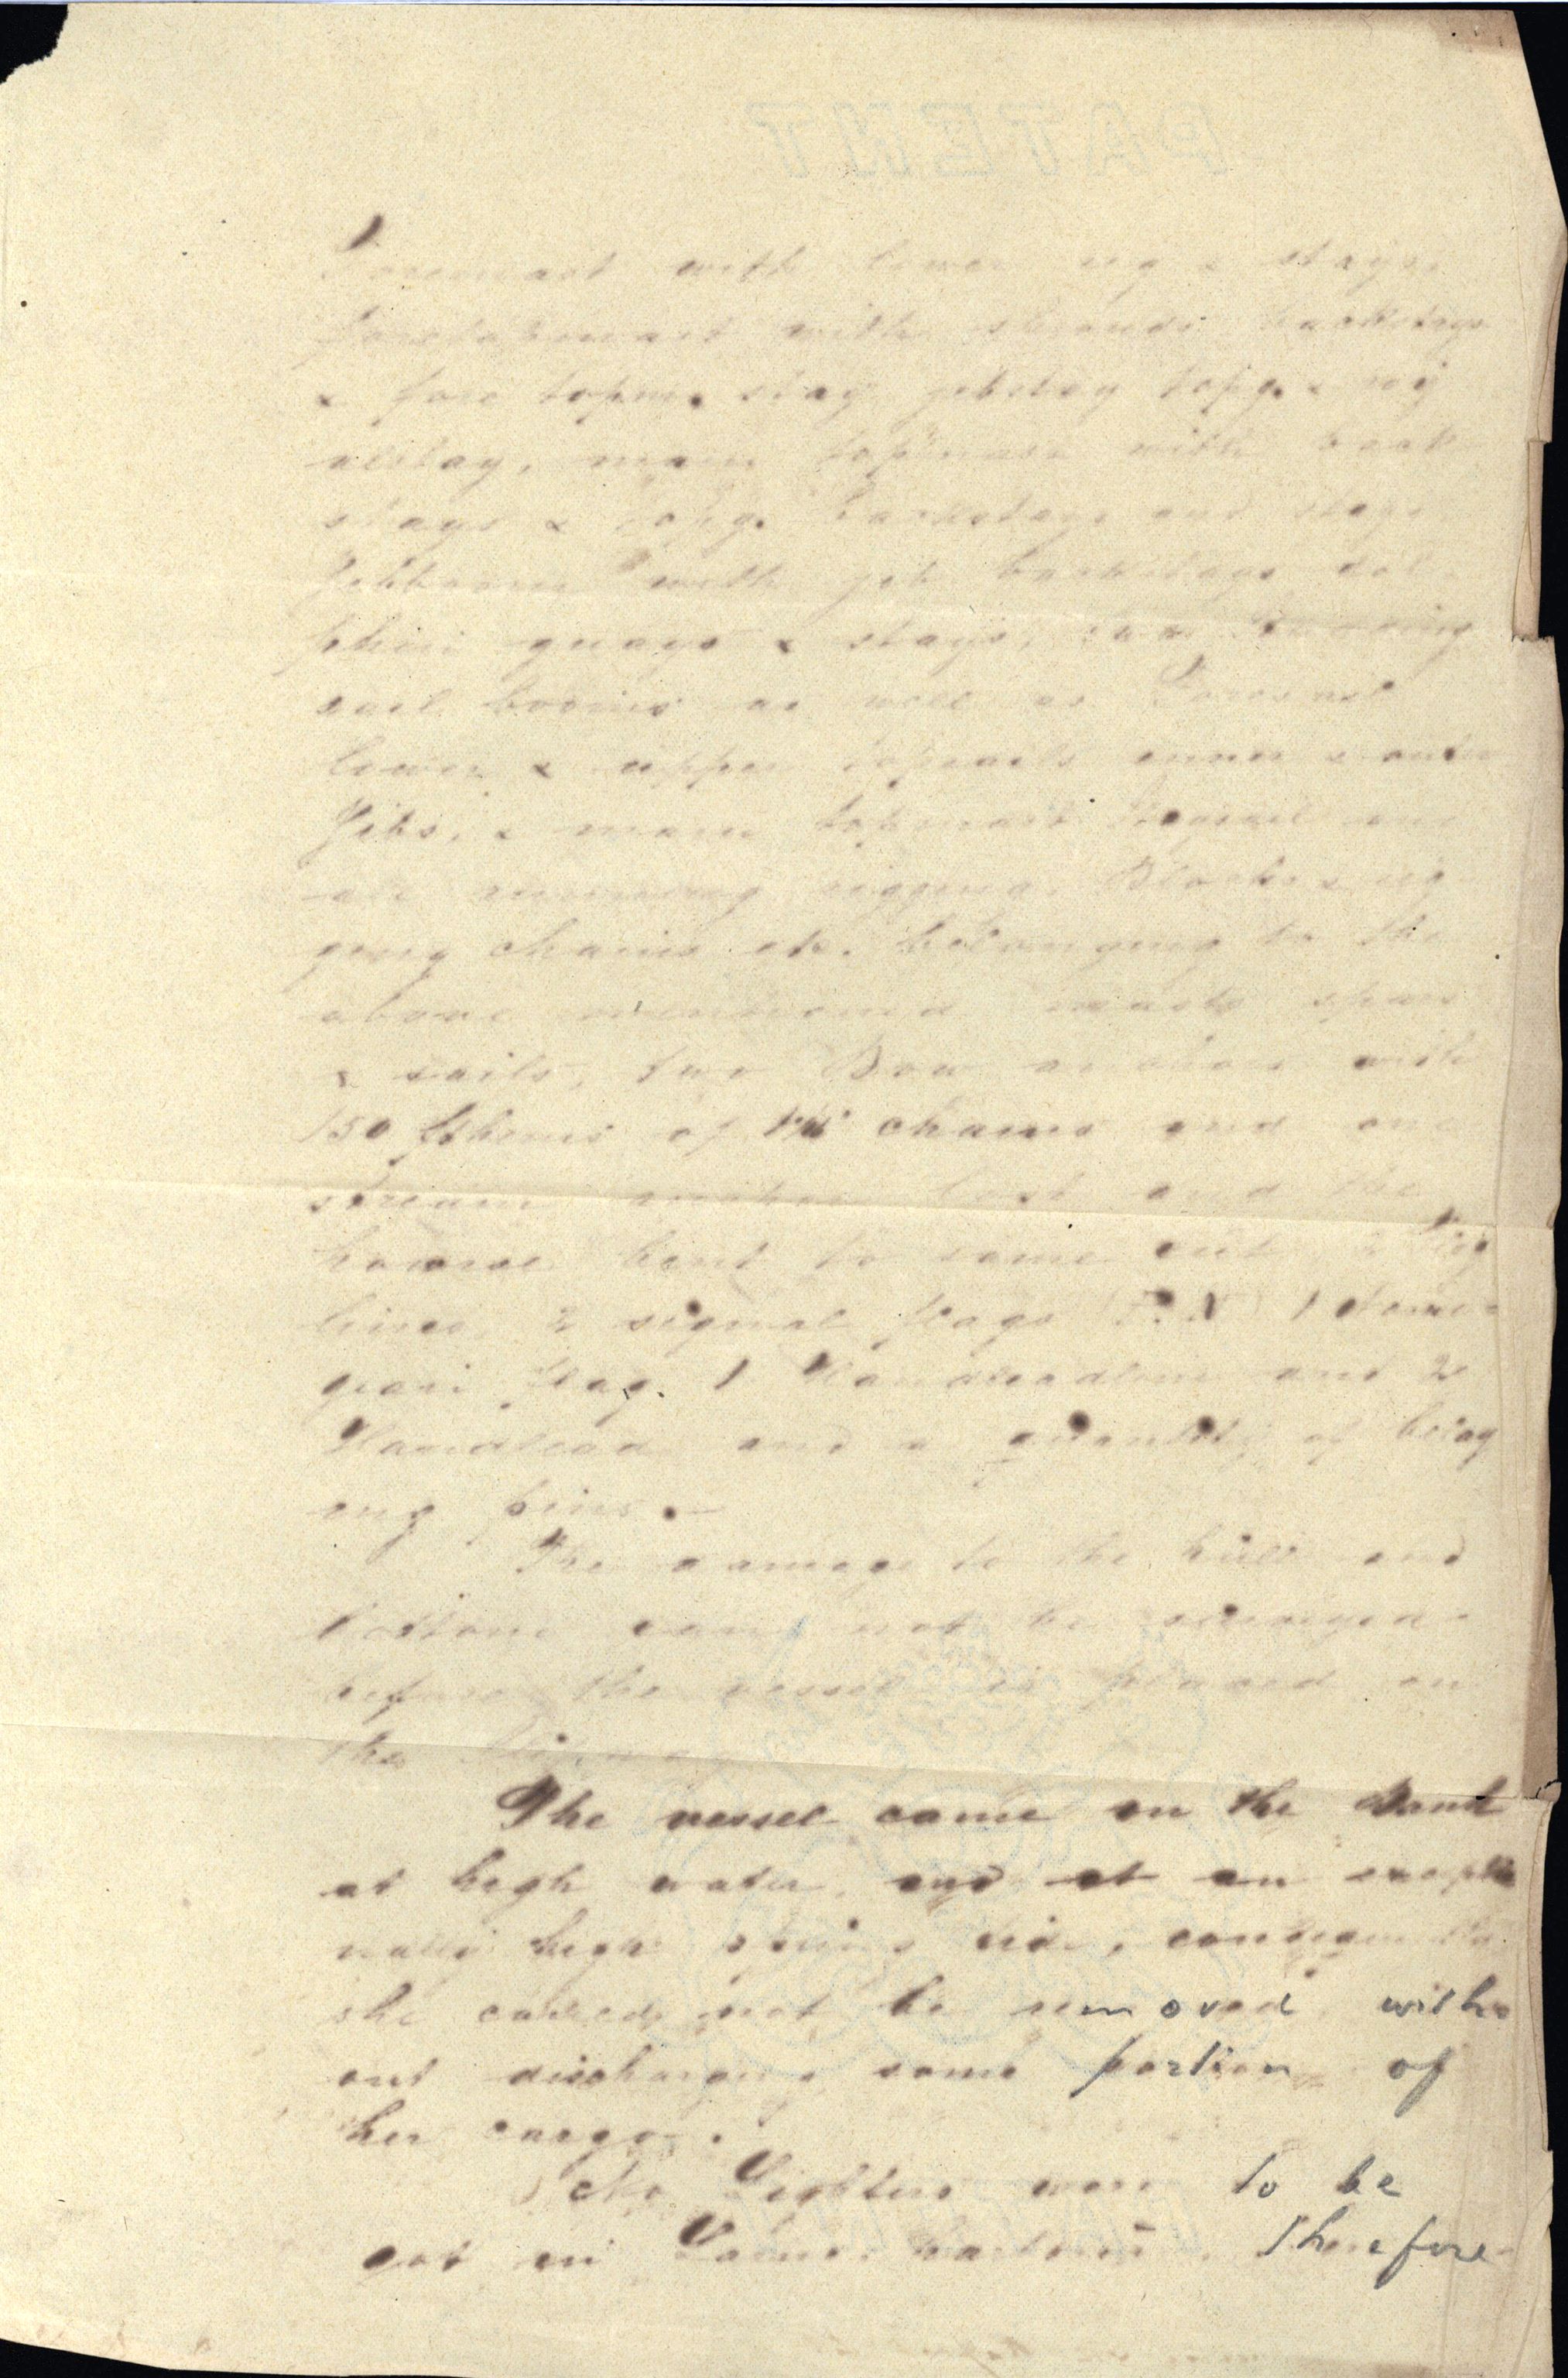 PATENT
Foremast with lower rig & stays,
foretopmast with shrouds backstays
& fore topm. stay jibstay topg. &
stay, main topmast with back
stays & topg. backstays and stays
Jibboom with jib backstays dol
phin guays & stays,
sail booms as well as Foresail
lower & upper topsails inner & outer
Jibs, & main topmast staysail and
all running rigging. Blocks & rig
ging chains etc. belonging to the
above mentioned masts spars
& sails, two Bow anchors with
150 fthoms of chains and one
stream anchor lost and the
hawser bent to same cut, 2 log
lines, 2 signal flags 1 Norwe=
gian flag. 1 Handleadline and 2
Handlead and a quantity of belay
ing pins.—
The damage to the hull and
bottom can not be surveyed
before the vessel is placed on
the
The vessel came on the Bank
at high water, and at an exeptio
nally high spring tide, consequently
she could not be removed with=
out discharging some portion of
her cargo.
No Lighters were to be
got in harbour. Therefore